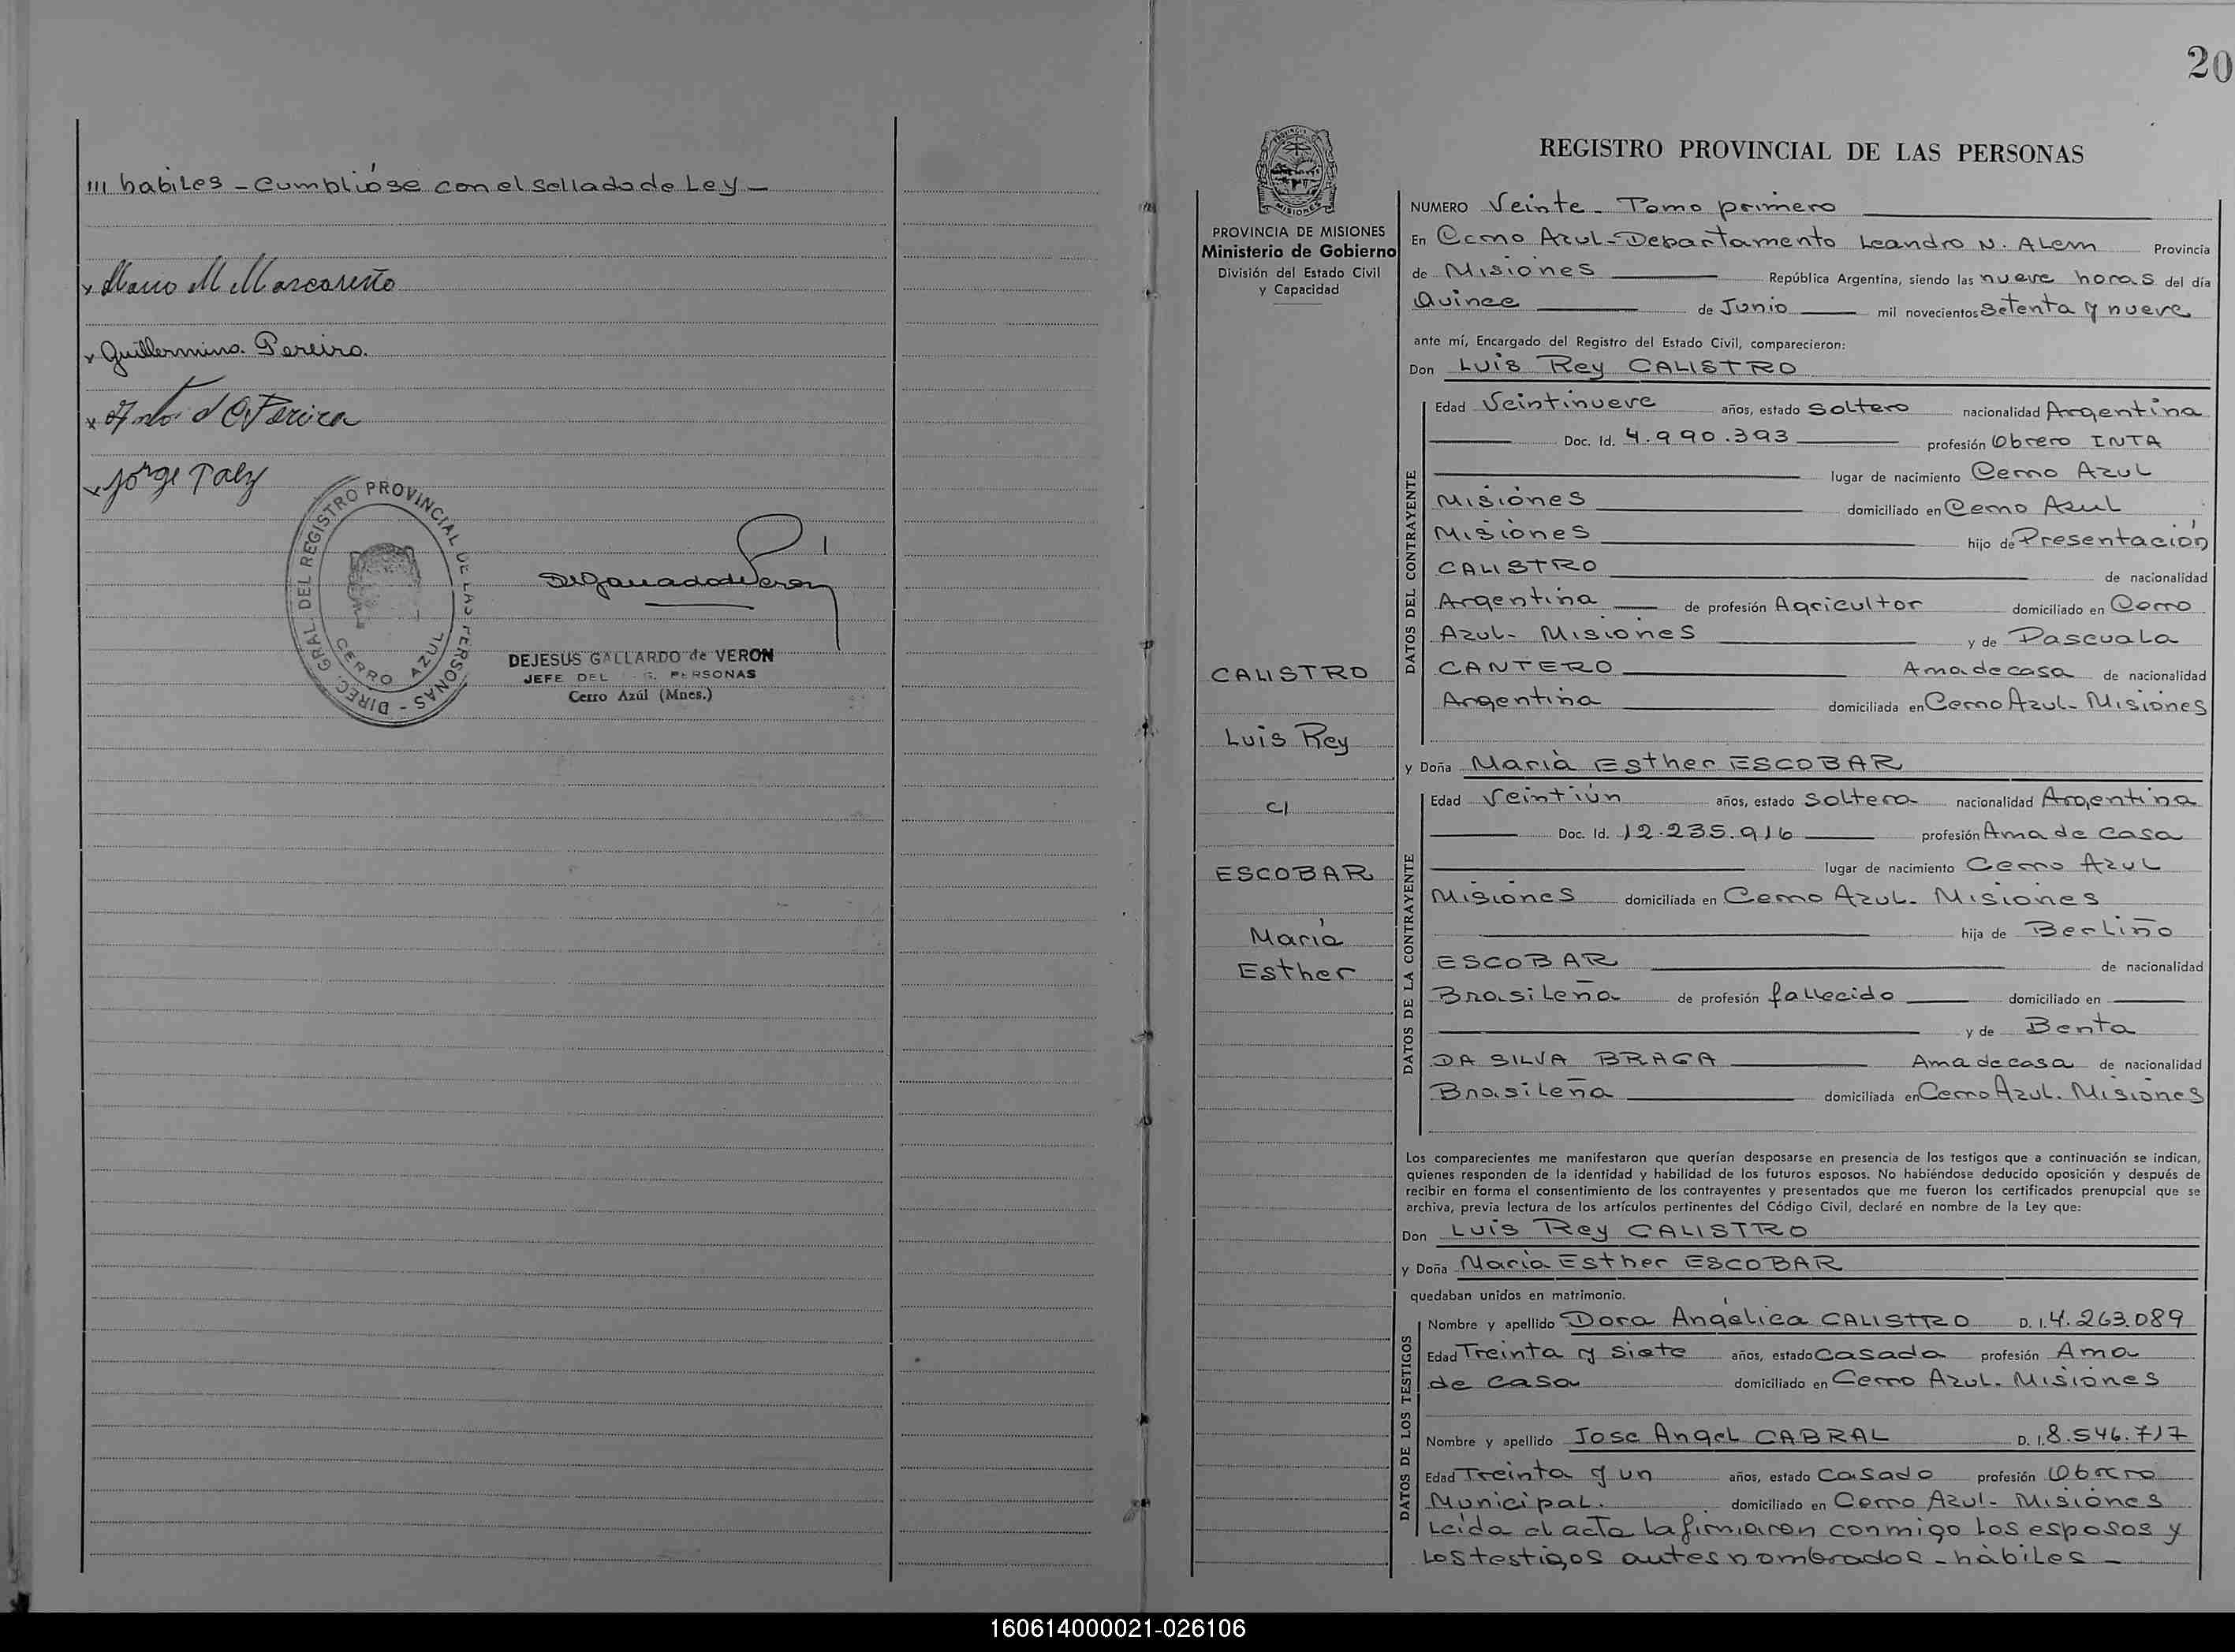 ''' habiles - Cumplióse con el sellado de Ley -
x Mario M Mascareño
x Guillermina Pereira.
x Pereira
x Jorge Paly
DIREC. GRAL. DEL REGISTRO PROVINCIAL DE LAS PERSONAS -
CERRO AZUL
DEJESUS GALLARDO de VERON
JEFE DEL G. PERSONAS
Cerro Azúl (Mnes.)
20
PROVINCIA DE MISIONES
Ministerio de Gobierno
División del Estado Civil
y Capacidad
CALISTRO
Luis Rey
c/
ESCOBAR
María
Esther
REGISTRO PROVINCIAL DE LAS PERSONAS
NUMERO Veinte - Tomo primero
En Cerro Azul - Departamento Leandro N. Alem Provincia
de Misiones República Argentina, siendo las nueve horas del día
Quince de Junio mil novecientos setenta y nueve
ante mí, Encargado del Registro del Estado Civil, comparecieron:
Don Luis Rey CALISTRO
DATOS DEL CONTRAYENTE
Edad Veintinueve años, estado soltero nacionalidad Argentina
Doc. Id. 4.990.393 profesión Obrero INTA
lugar de nacimiento Cerro Azul
Misiones domiciliado en Cerro Azul
Misiones hijo de Presentación
CALISTRO de nacionalidad
Argentina de profesión Agricultor domiciliado en Cerro
Azul - Misiones y de Pascuala
CANTERO Ama de casa de nacionalidad
Argentina domiciliada en Cerro Azul - Misiones
y Doña María Esther ESCOBAR
DATOS DE LA CONTRAYENTE
Edad Veintiún años, estado soltera nacionalidad Argentina
Doc. Id. 12.235.916 profesión Ama de casa
lugar de nacimiento Cerro Azul
Misiones domiciliada en Cerro Azul - Misiones
hija de Berliño
ESCOBAR de nacionalidad
Brasileña de profesión fallecido domiciliado en
y de Benta
DA SILVA BRAGA Ama de casa de nacionalidad
Brasileña domiciliada en Cerro Azul - Misiones
Los comparecientes me manifestaron que querían desposarse en presencia de los testigos que a continuación se indican,
quienes responden de la identidad y habilidad de los futuros esposos. No habiéndose deducido oposición y después de
recibir en forma el consentimiento de los contrayentes y presentados que me fueron los certificados prenupcial que se
archiva, previa lectura de los artículos pertinentes del Código Civil, declaré en nombre de la Ley que:
Don Luis Rey CALISTRO
y Doña María Esther ESCOBAR
quedaban unidos en matrimonio.
DATOS DE LOS TESTIGOS
Nombre y apellido Dora Angélica CALISTRO D. I. 4.263.089
Edad Treinta y siete años, estado casada profesión Ama
de casa domiciliado en Cerro Azul - Misiones
Nombre y apellido Jose Angel CABRAL D. I. 8.546.717
Edad Treinta y un años, estado casado profesión Obrero
Municipal. domiciliado en Cerro Azul - Misiones
Leída el acta la firmaron conmigo los esposos y
los testigos antes nombrados - hábiles -
160614000021-026106